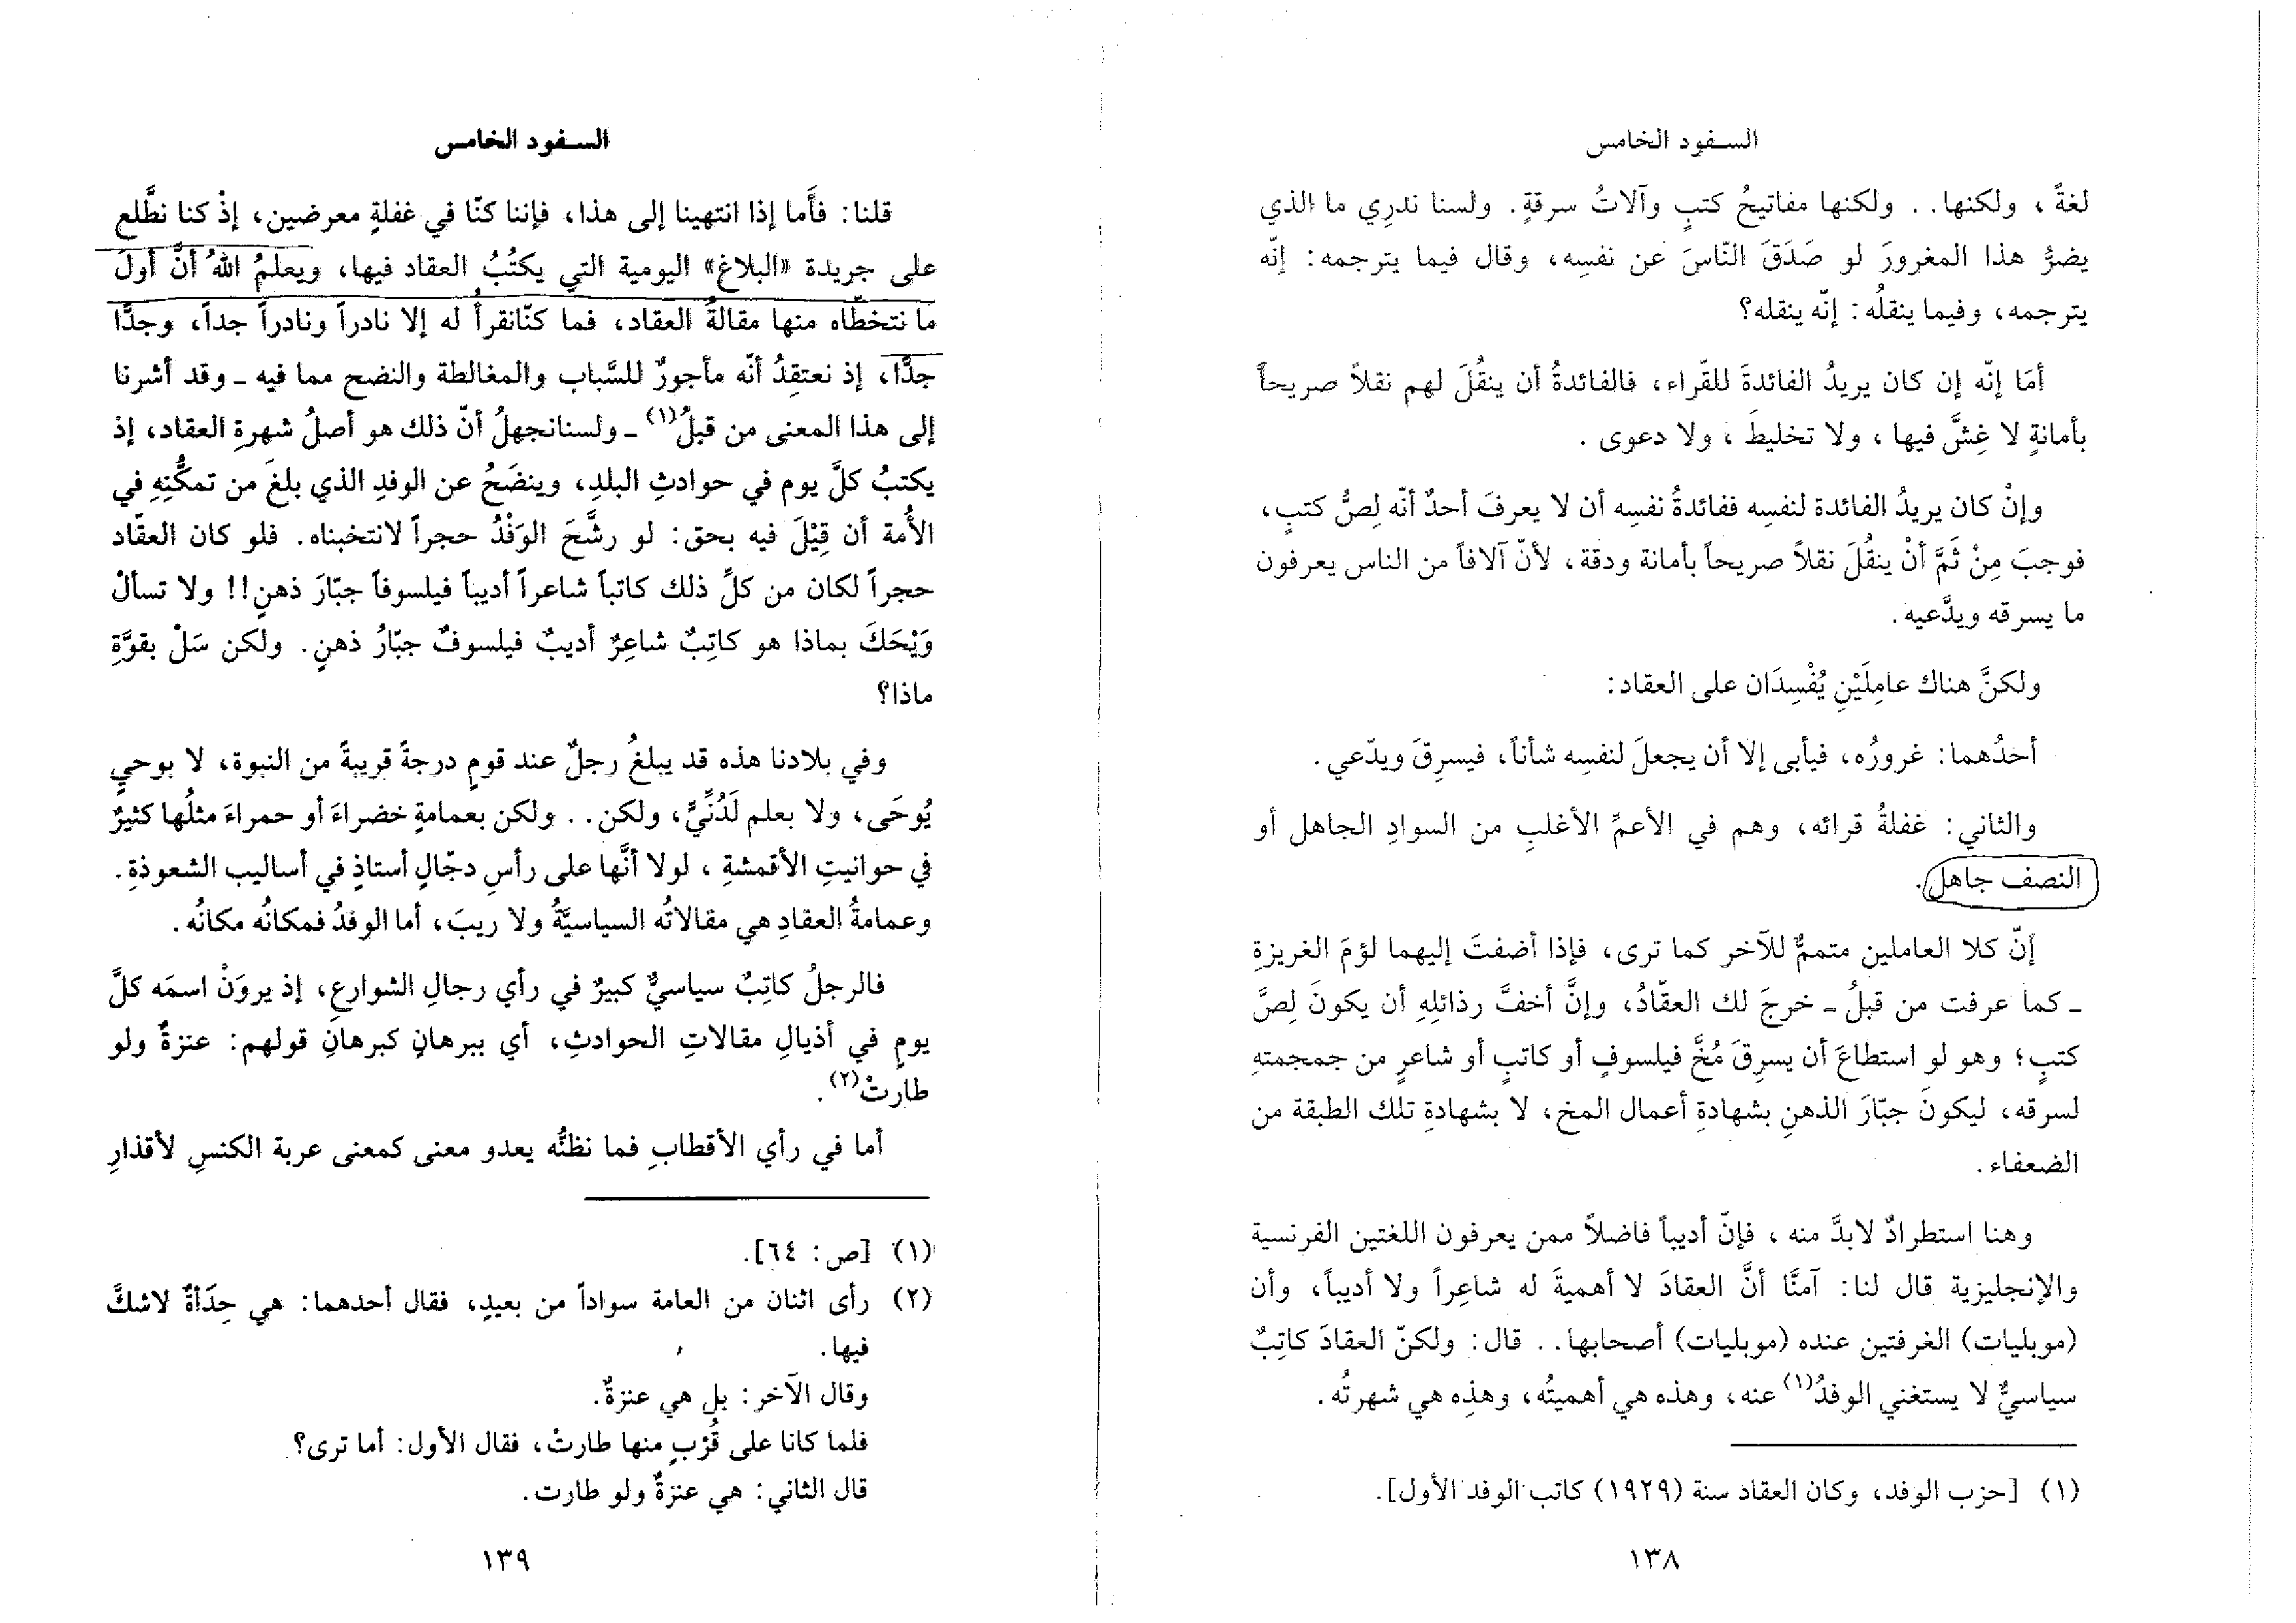 السفود الخامس
لغةً، ولكنها.. ولكنها مفاتيحُ كتبٍ وآلاتُ سرقةٍ. ولسنا ندرِي ما الذي
يضرُّ هذا المغرورَ لو صَدَقَ النّاسَ عن نفسِه، وقال فيما يترجمه: إنّه
يترجمه، وفيما ينقلُه: إنّه ينقله؟
أمَا إنّه إن كان يريدُ الفائدةَ للقّراء، فالفائدةُ أن ينقُلَ لهم نقلاً صريحاً
بأمانةٍ لا غِشَّ فيها، ولا تخليطَ، ولا دعوى.
وإنْ كان يريدُ الفائدة لنفسِه ففائدةُ نفسِه أن لا يعرفَ أحدٌ أنّه لِصُّ كتبٍ،
فوجبَ مِنْ ثَمَّ أنْ ينقُلَ نقلاً صريحاً بأمانة ودقة، لأنّ آلافاً من الناس يعرفون
ما يسرقه ويدَّعيه.
ولكنَّ هناك عامِلَيْنِ يُفْسِدَان على العقاد:
أحدُهما: غرورُه، فيأبى إلا أن يجعلَ لنفسِه شأناً، فيسرِقَ ويدّعي.
والثاني: غفلةُ قرائه، وهم في الأعمِّ الأغلبِ من السوادِ الجاهل أو
النصف جاهل.
إنّ كلا العاملين متممٌّ للآخر كما ترى، فإذا أضفتَ إليهما لؤمَ الغريزةِ
ـ كما عرفت من قبلُ ـ خرجَ لك العقّادُ، وإنَّ أخفَّ رذائلِهِ أن يكونَ لِصَّ
كتبٍ؛ وهو لو استطاعَ أن يسرِقَ مُخَّ فيلسوفٍ أو كاتبٍ أو شاعرٍ من جمجمتهِ
لسرقه، ليكونَ جبّارَ الذهنِ بشهادةِ أعمال المخ، لا بشهادةِ تلك الطبقة من
الضعفاء.
وهنا استطرادٌ لابدَّ منه، فإنّ أديباً فاضلاً ممن يعرفون اللغتين الفرنسية
والإنجليزية قال لنا: آمنَّا أنَّ العقادَ لا أهميةَ له شاعِراً ولا أديباً، وأن
(موبليات) الغرفتين عنده (موبليات) أصحابها.. قال: ولكنّ العقادَ كاتِبٌ
سياسيٌّ لا يستغني الوفدُ(١) عنه، وهذه هي أهميتُه، وهذِه هي شهرتُه.
(١) [حزب الوفد، وكان العقاد سنة (١٩٢٩) كاتب الوفد الأول].
١٣٨
السفود الخامس
قلنا: فأَما إذا انتهينا إلى هذا، فإننا كنّا في غفلةٍ معرضين، إذْ كنا نطَّلع
على جريدة «البلاغ» اليومية التي يكتُبُ العقاد فيها، ويعلمُ اللهُ أنَّ أولَ
ما نتخطّاه منها مقالةُ العقاد، فما كنّانقرأُ له إلا نادراً ونادراً جداً، وجدًّا
جدًّا، إذ نعتقِدُ أنّه مأجورٌ للسَّباب والمغالطة والنضح مما فيه ـ وقد أشرنا
إلى هذا المعنى من قبلُ(١) ـ ولسنانجهلُ أنّ ذلك هو أصلُ شهرةِ العقاد، إذ
يكتبُ كلَّ يوم في حوادثِ البلدِ، وينضَحُ عن الوفدِ الذي بلغَ من تمكُّنِهِ في
الأُمة أن قِيْلَ فيه بحق: لو رشَّحَ الوَفْدُ حجراً لانتخبناه. فلو كان العقّاد
حجراً لكان من كلِّ ذلك كاتباً شاعراً أديباً فيلسوفاً جبّارَ ذهنٍ!! ولا تسألْ
وَيْحَكَ بماذا هو كاتِبٌ شاعِرٌ أديبٌ فيلسوفٌ جبّارُ ذهنٍ. ولكن سَلْ بقوَّةِ
ماذا؟
وفي بلادنا هذه قد يبلغُ رجلٌ عند قومٍ درجةً قريبةً من النبوة، لا بوحيٍ
يُوحَى، ولا بعلم لَدُنِّيٍّ، ولكن.. ولكن بعمامةٍ خضراءَ أو حمراءَ مثلُها كثيرٌ
في حوانيتِ الأقمشةِ، لولا أنَّها على رأسِ دجّالٍ أستاذٍ في أساليب الشعوذةِ.
وعمامةُ العقادِ هي مقالاتُه السياسيَّةُ ولا ريبَ، أما الوفدُ فمكانُه مكانُه.
فالرجلُ كاتِبٌ سياسيٌّ كبيرٌ في رأي رجالِ الشوارعِ، إذ يروَنْ اسمَه كلَّ
يومٍ في أذيالِ مقالاتِ الحوادثِ، أي ببرهانٍ كبرهانِ قولهم: عنزةٌ ولو
طارتْ(٢).
أما في رأي الأقطابِ فما نظنُّه يعدو معنى كمعنى عربة الكنسِ لأقذارِ
(١) [ص: ٦٤].
(٢) رأى اثنان من العامة سواداً من بعيدٍ، فقال أحدهما: هي حِدَأةٌ لاشكَّ
فيها.
وقال الآخر: بل هي عنزةٌ.
فلما كانا على قُرْبٍ منها طارتْ، فقال الأول: أما ترى؟
قال الثاني: هي عنزةٌ ولو طارت.
١٣٩